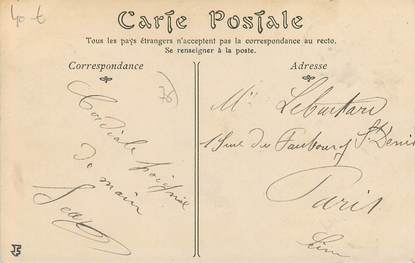 40 €
Carte Postale
Tous les pays étrangers n'acceptent pas la correspondance au recto.
Se renseigner à la poste.
Correspondance
Adresse
76
Cordiale poignée
de main
Mr
rue du Faubourg St Denis
Paris